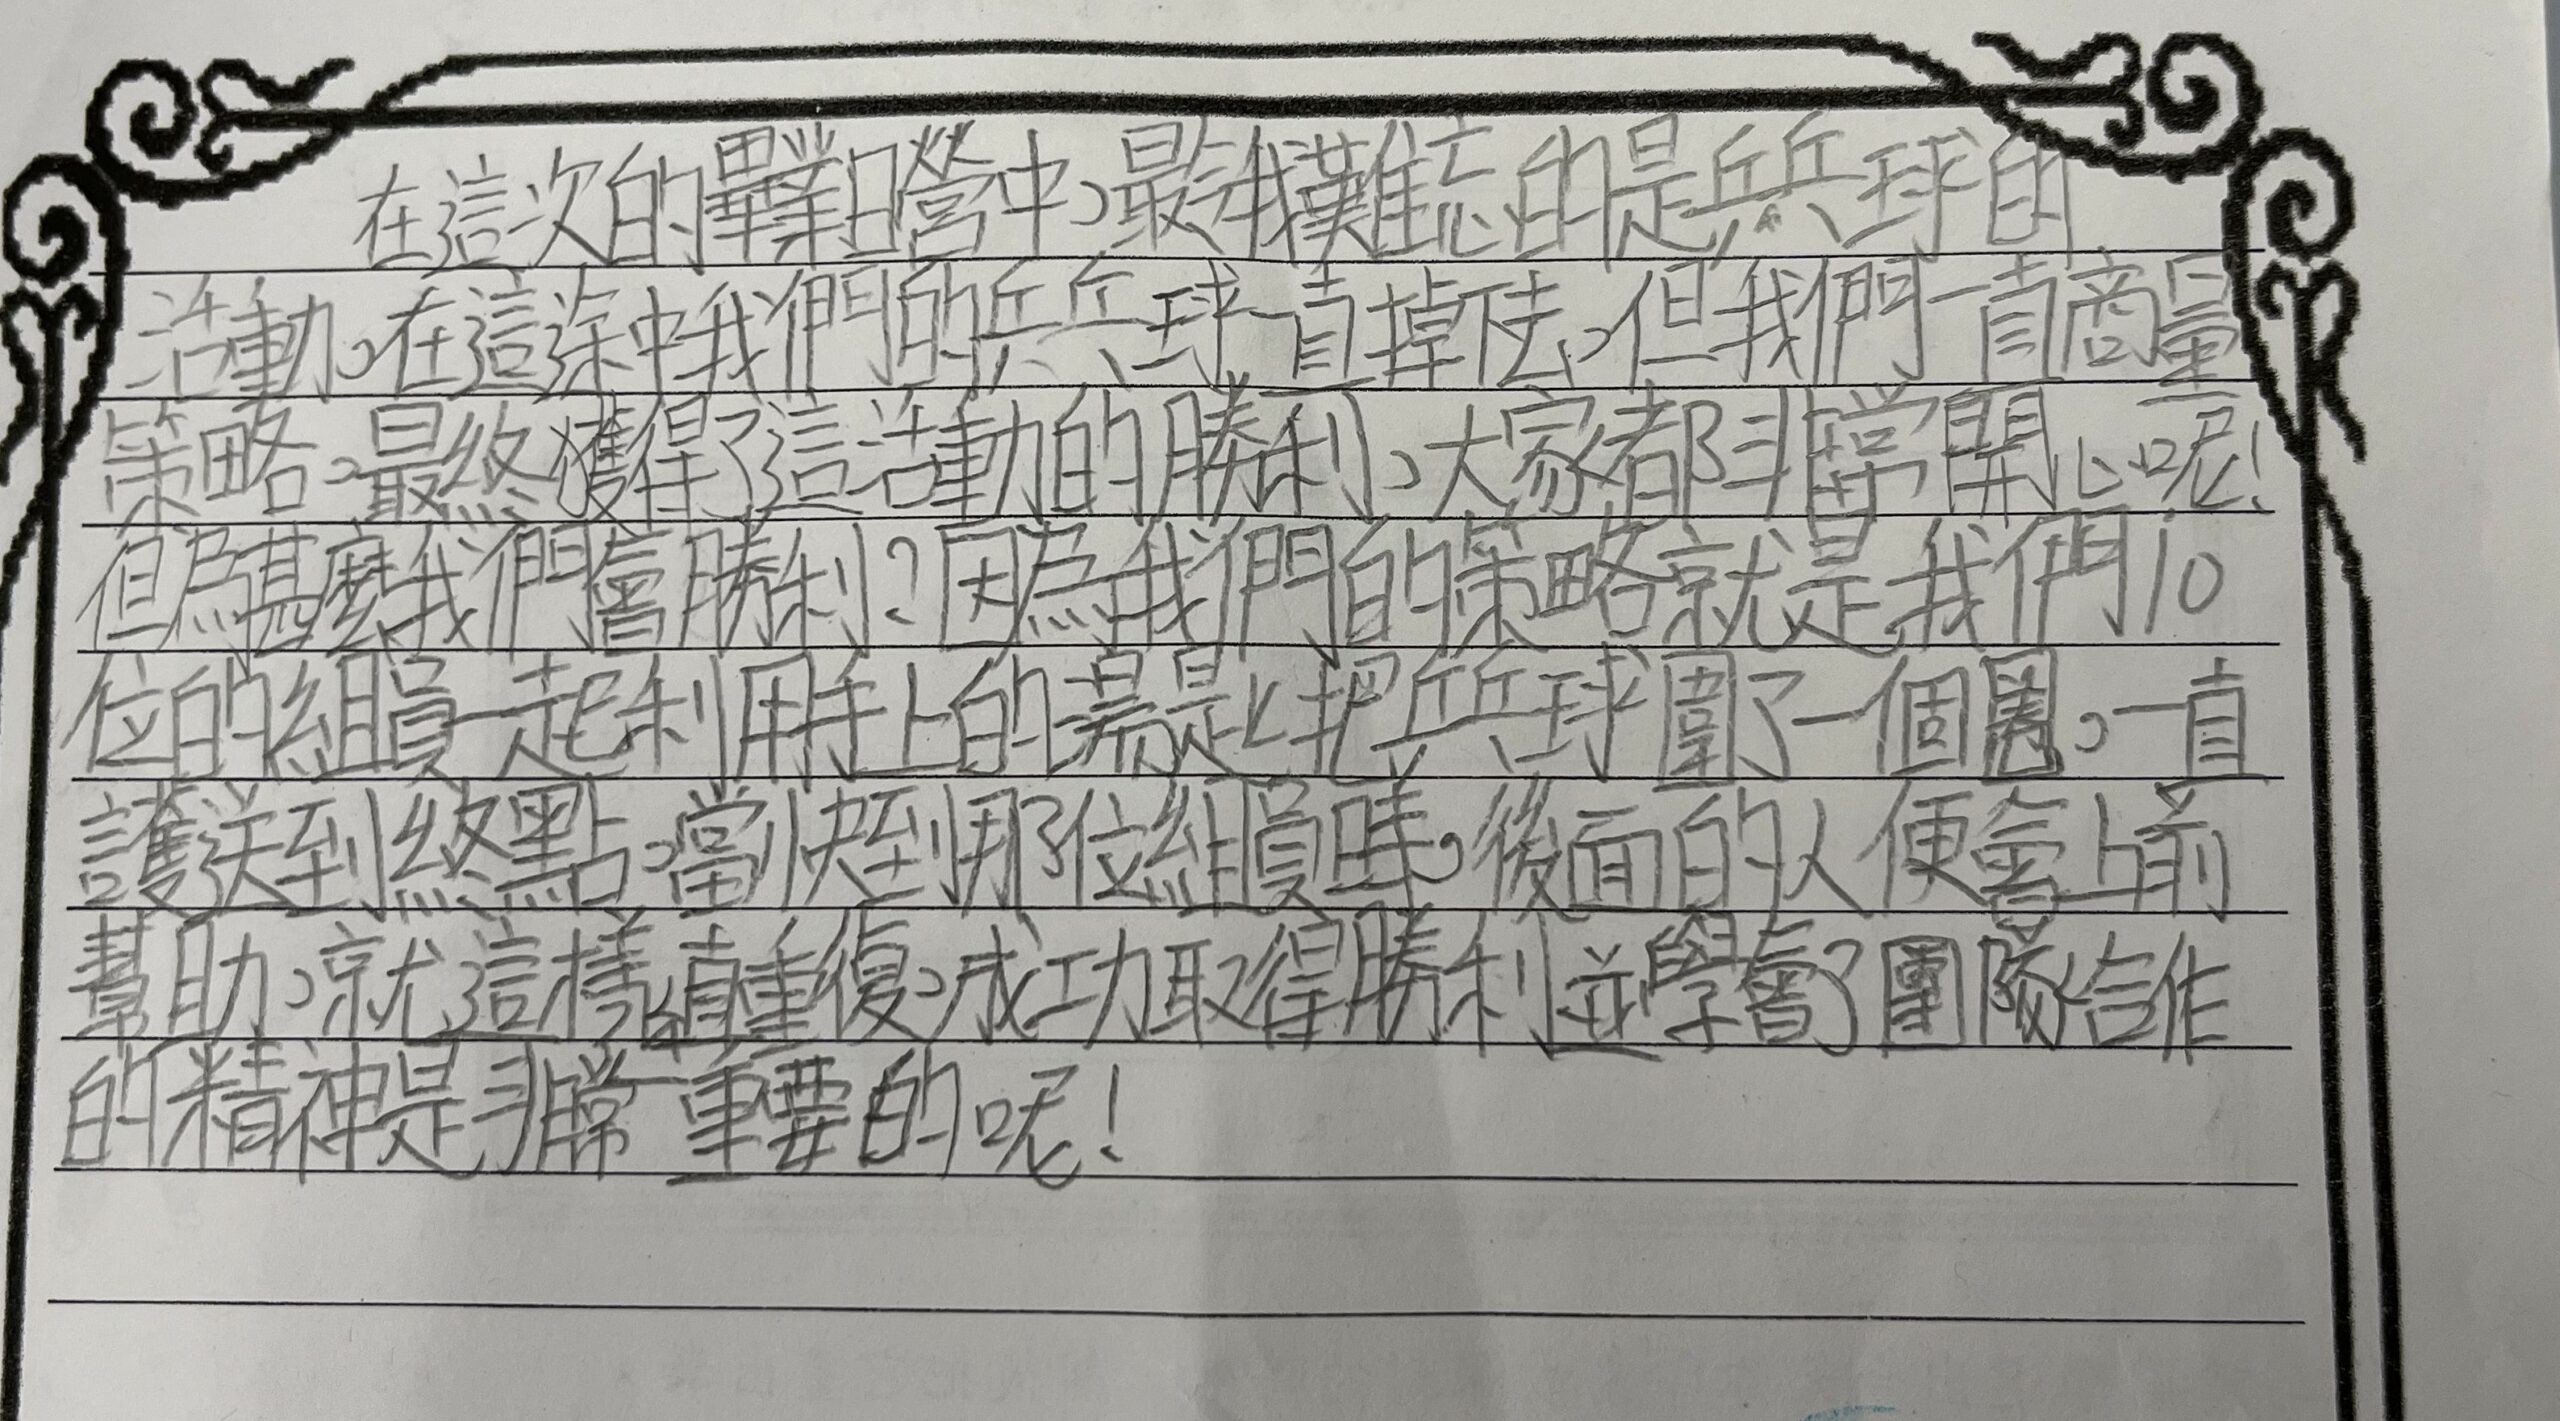 在這次的畢業營中，最令我難忘的是乒乓球的
活動。在這途中我們的乒乓球一直掉下去，但我們一直商量
策略，最終獲得了這活動的勝利，大家都非常開心呢！
但為甚麼我們會勝利？因為我們的策略就是我們10
位的組員一起利用手上的湯匙把乒乓球圍了一個圈，一直
護送到終點，當快到那位組員時，後面的人便會上前
幫助，就這樣一直重復，成功取得勝利並學會了團隊合作
的精神是非常重要的呢！